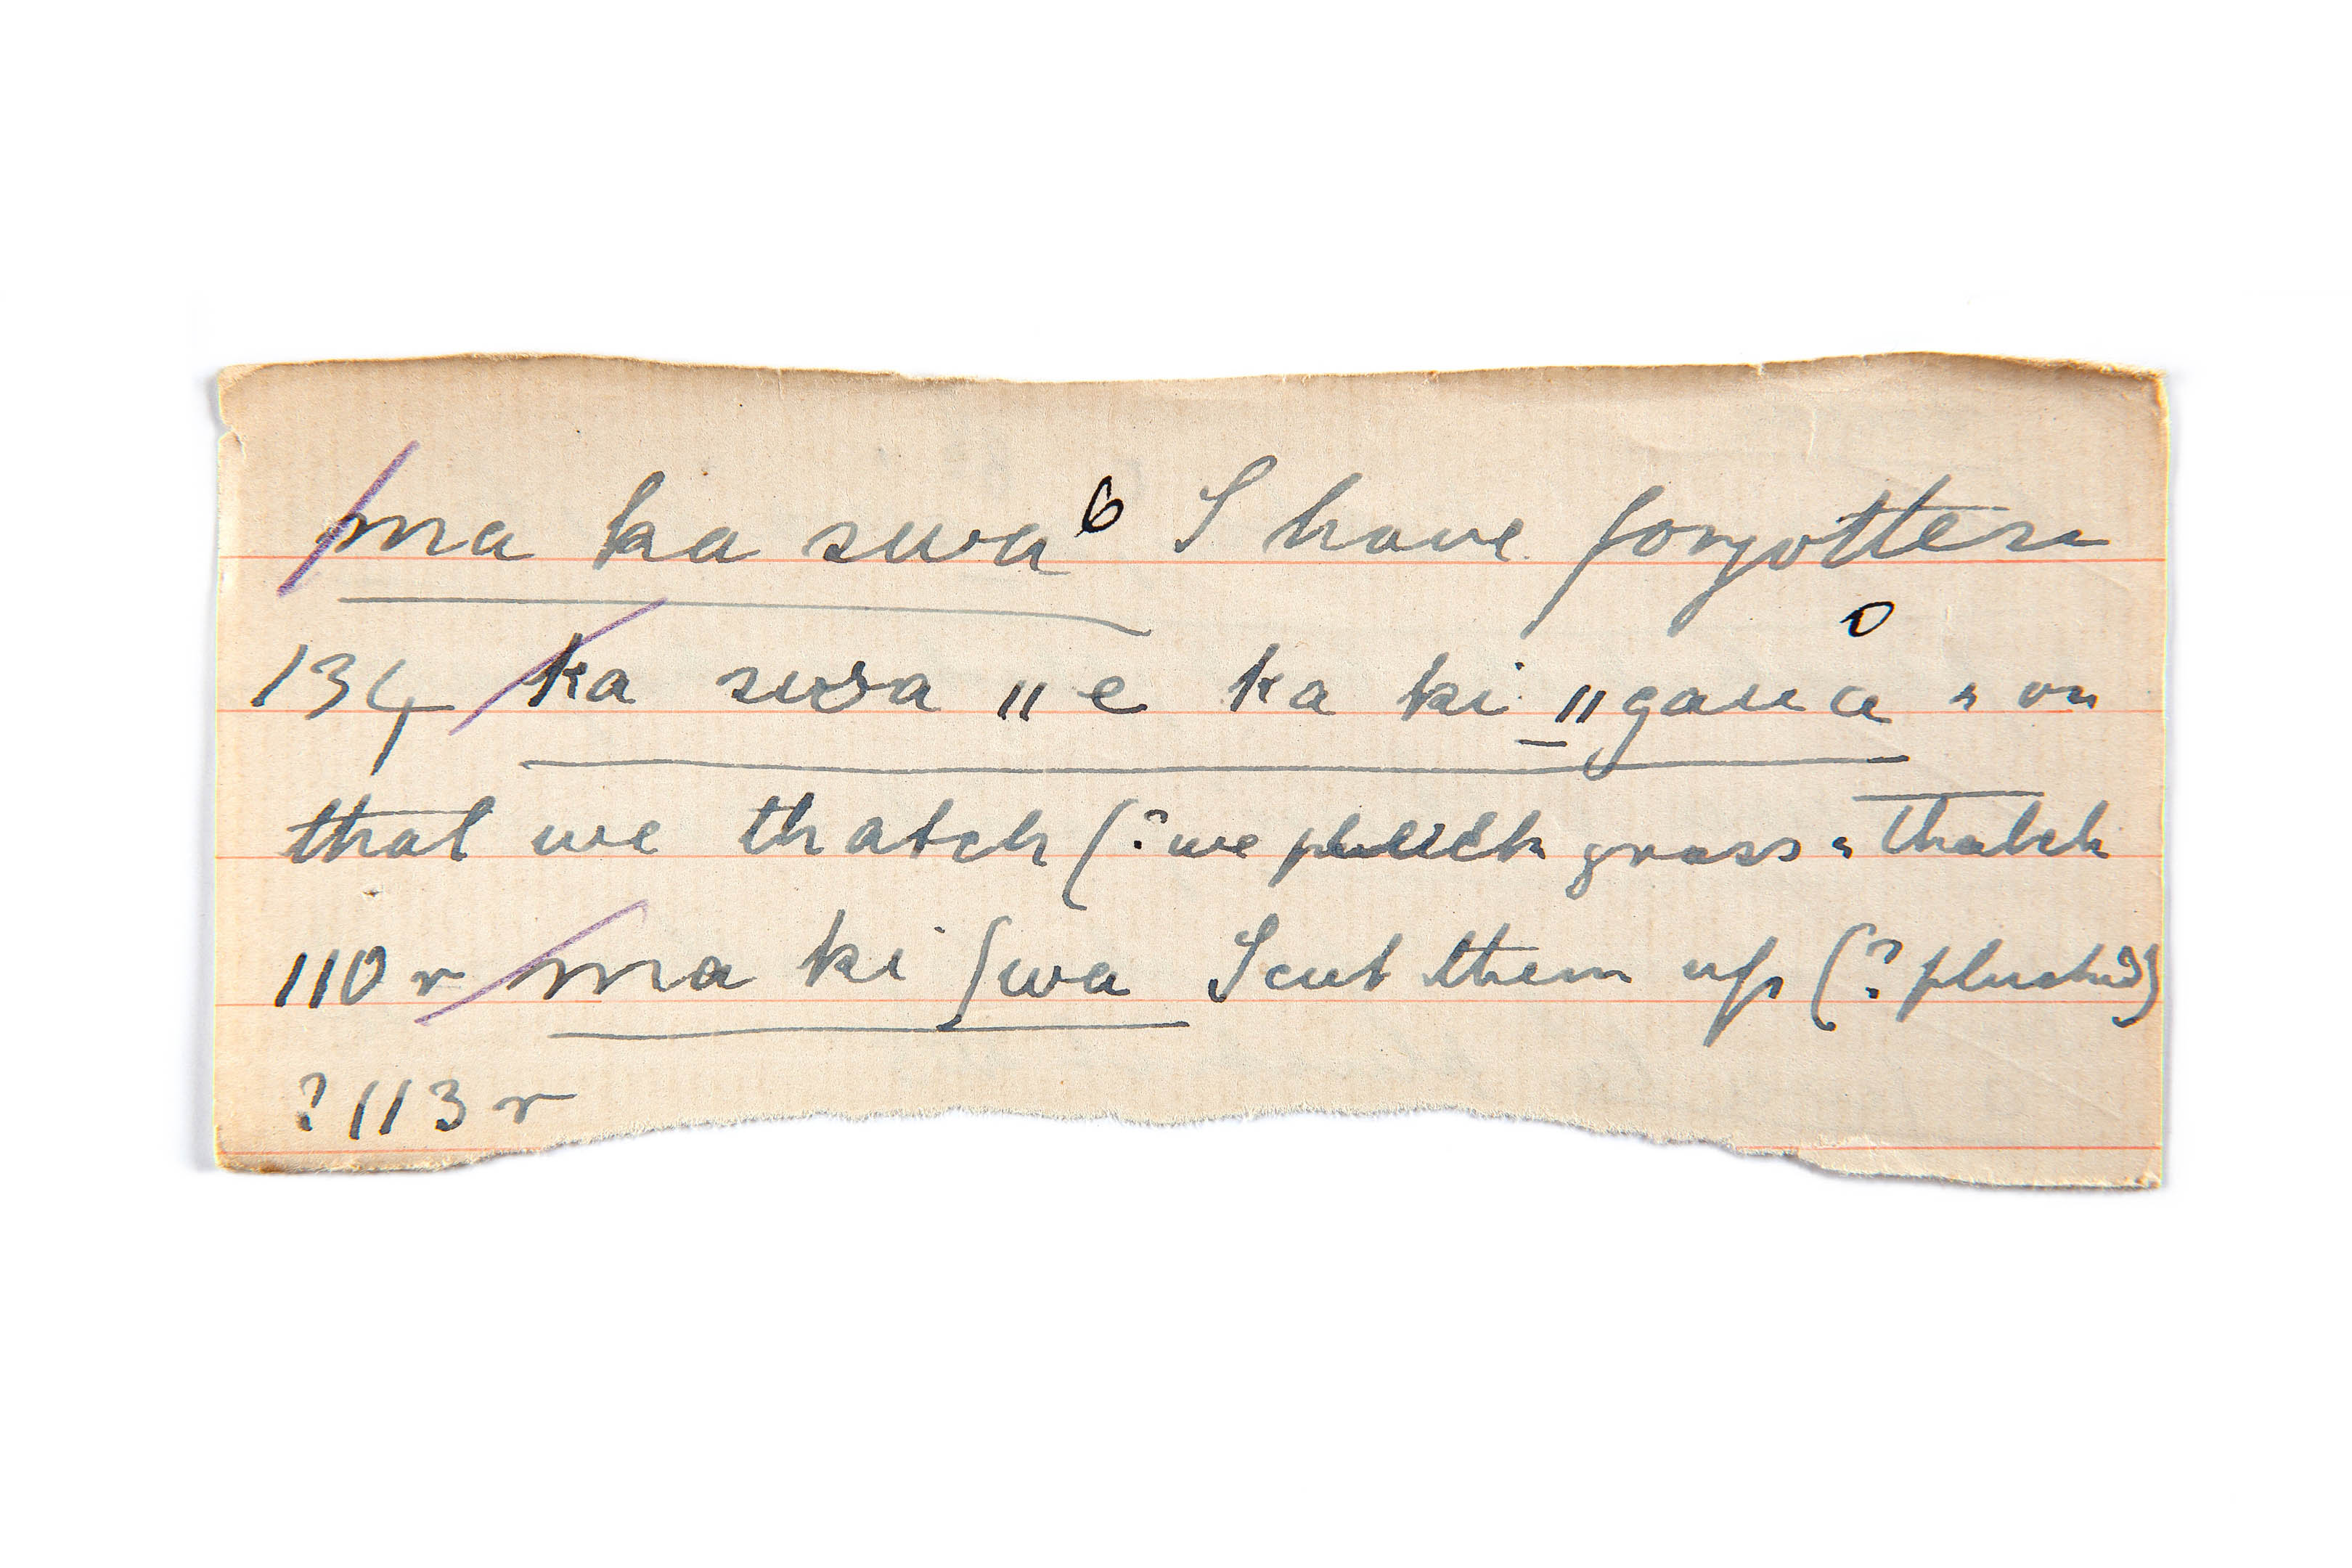 ma ka swa 6 I have forgotten
134 ka swa ǁ e ka ki ǁ gaue a o " on
that we thatch (? we pluck grass " thatch
110 r ma ki ʃwa I cut them up (? plucked)
? 113 r